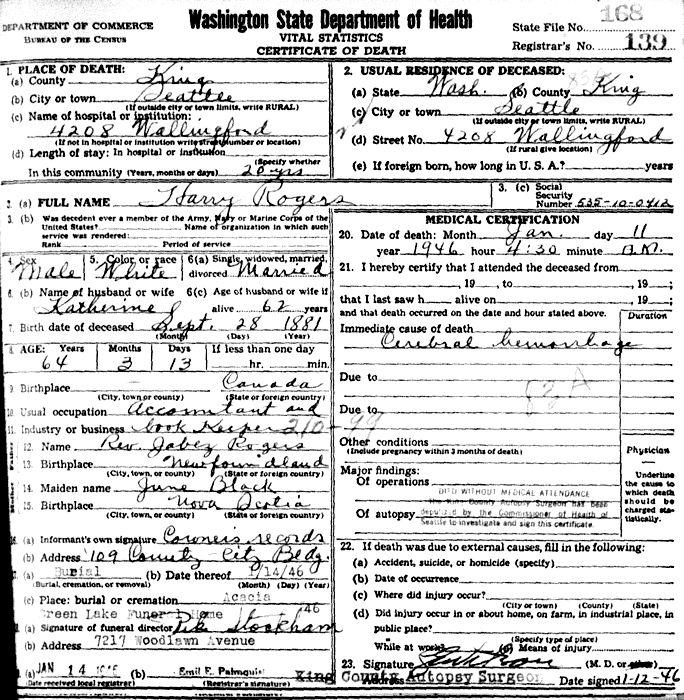 DEPARTMENT OF COMMERCE
BUREAU OF THE CENSUS
Washington State Department of Health
VITAL STATISTICS
CERTIFICATE OF DEATH
168
State File No.
Registrar's No. 139
1. PLACE OF DEATH:
(a) County King
(b) City or town Seattle
(If outside city or town limits, write RURAL)
(c) Name of hospital or institution:
4208 Wallingford
(If not in hospital or institution write street number or location)
(d) Length of stay: In hospital or institution
(Specify whether
In this community (Years, months or days) 20 yrs
2. USUAL RESIDENCE OF DECEASED:
(a) State Wash. (b) County King
(c) City or town Seattle
(If outside city or town limits, write RURAL)
(d) Street No. 4208 Wallingford
(If rural give location)
(e) If foreign born, how long in U. S. A.? years
3. (a) FULL NAME Harry Rogers
3. (c) Social Security Number 535-10-0412
3. (b) Was decedent ever a member of the Army, Navy or Marine Corps of the
United States? Name of organization in which such
service was rendered:
Rank Period of service
4. Sex Male
5. Color or race White
6(a) Single, widowed, married, divorced Married
6. (b) Name of husband or wife Katherine J
6(c) Age of husband or wife if alive 62 years
7. Birth date of deceased Sept. 28 1881
(Month) (Day) (Year)
8. AGE: Years Months Days If less than one day
64 3 13 hr. min.
9. Birthplace Canada
(City, town or county) (State or foreign country)
10. Usual occupation Accountant and
11. Industry or business book Keeper 210-99
12. Name Rev. Jabez Rogers
13. Birthplace Newfoundland
(City, town, or county) (State or foreign country)
14. Maiden name June Black
15. Birthplace Nova Scotia
(City, town, or county) (State or foreign country)
Informant's own signature Coroners records
(b) Address 109 County-City Bldg.
(a) Burial (b) Date thereof 1/14/46
(Burial, cremation, or removal) (Month) (Day) (Year)
(c) Place: burial or cremation Acacia
Green Lake Funeral Home
(a) Signature of funeral director Stockham
(b) Address 7217 Woodlawn Avenue
(a) JAN 14 (b) Emil E. Palmquist
(Date received local registrar) (Registrar's signature)
MEDICAL CERTIFICATION
20. Date of death: Month Jan. day 11
year 1946 hour 4:30 minute A.M.
21. I hereby certify that I attended the deceased from
, 19 , to , 19 ;
that I last saw h alive on , 19 ;
and that death occurred on the date and hour stated above.
Duration
Immediate cause of death
Cerebral hemorrhage
Due to
83A
Due to
Other conditions
(Include pregnancy within 3 months of death)
Physician
Underline the cause to which death should be charged statistically.
Major findings:
Of operations
Of autopsy
DIED WITHOUT MEDICAL ATTENDANCE
The King County Autopsy Surgeon has been
deputized by the Commissioner of Health of
Seattle to investigate and sign this certificate.
22. If death was due to external causes, fill in the following:
(a) Accident, suicide, or homicide (specify)
(b) Date of occurrence
(c) Where did injury occur?
(City or town) (County) (State)
(d) Did injury occur in or about home, on farm, in industrial place, in
public place?
(Specify type of place)
While at work? (e) Means of injury
23. Signature (M. D. or other)
King County Autopsy Surgeon
Address Date signed 1-12-46